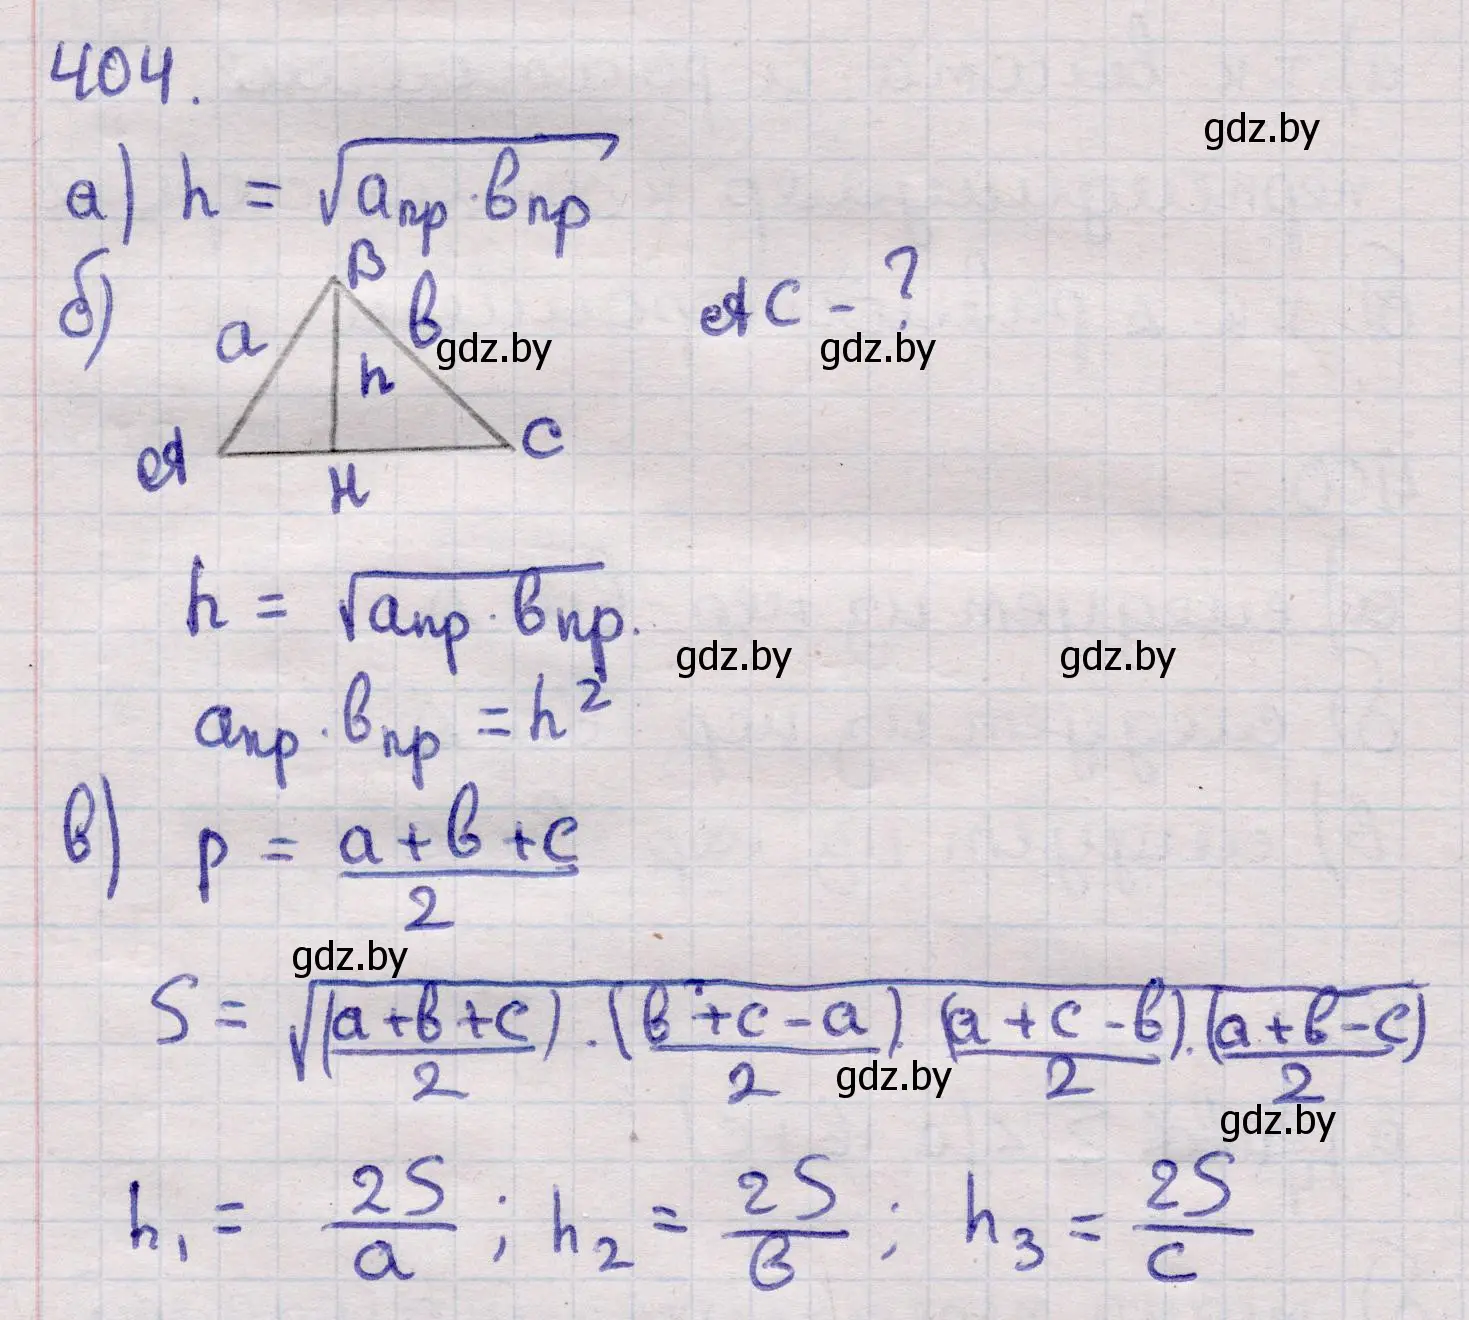 404.
gdz.by
а) h = √(aпр · bпр)
б)
B
a
b
h
A
C
H
AC - ?
gdz.by
gdz.by
h = √(aпр · bпр).
gdz.by
gdz.by
aпр · bпр = h²
в) p = (a+b+c)/2
gdz.by
S = √((a+b+c)/2) · ((b+c-a)/2) · ((a+c-b)/2) · ((a+b-c)/2)
gdz.by
gdz.by
h₁ = 2S/a ; h₂ = 2S/b ; h₃ = 2S/c